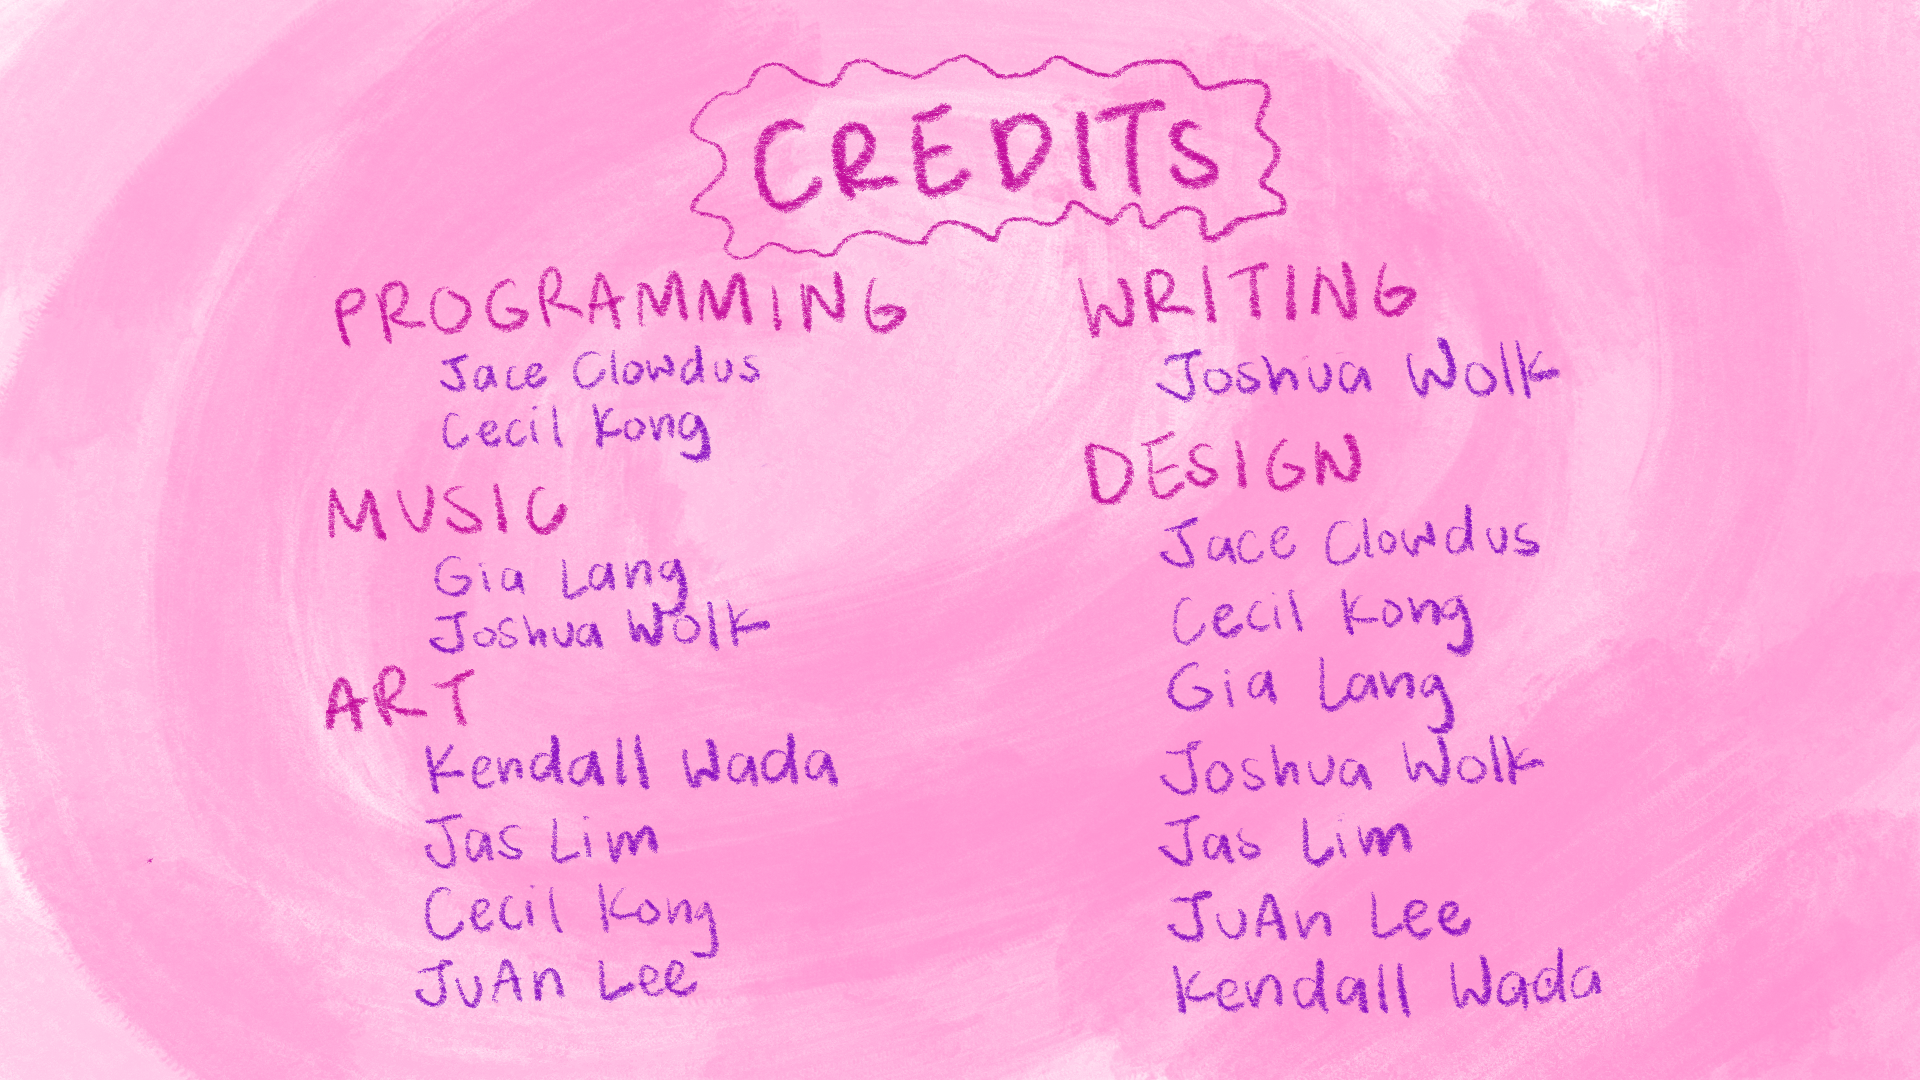 CREDITS
PROGRAMMING
Jace Clowdus
Cecil Kong
MUSIC
Gia Lang
Joshua Wolk
ART
Kendall Wada
Jas Lim
Cecil Kong
JuAn Lee
WRITING
Joshua Wolk
DESIGN
Jace Clowdus
Cecil Kong
Gia Lang
Joshua Wolk
Jas Lim
JuAn Lee
Kendall Wada